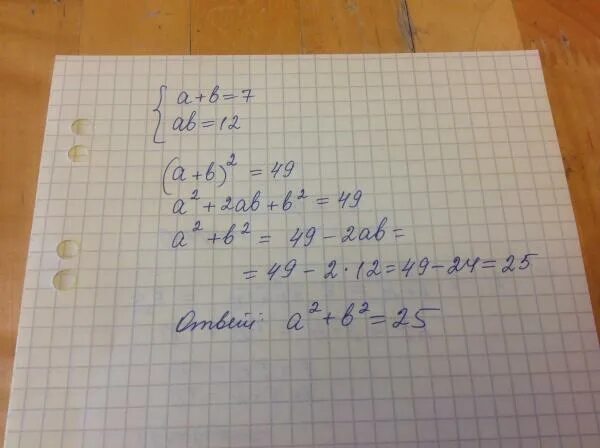 { a+b=7
ab=12
(a+b)² = 49
a²+2ab+b² = 49
a²+b² = 49-2ab=
= 49-2·12=49-24=25
Ответ: a²+b²=25